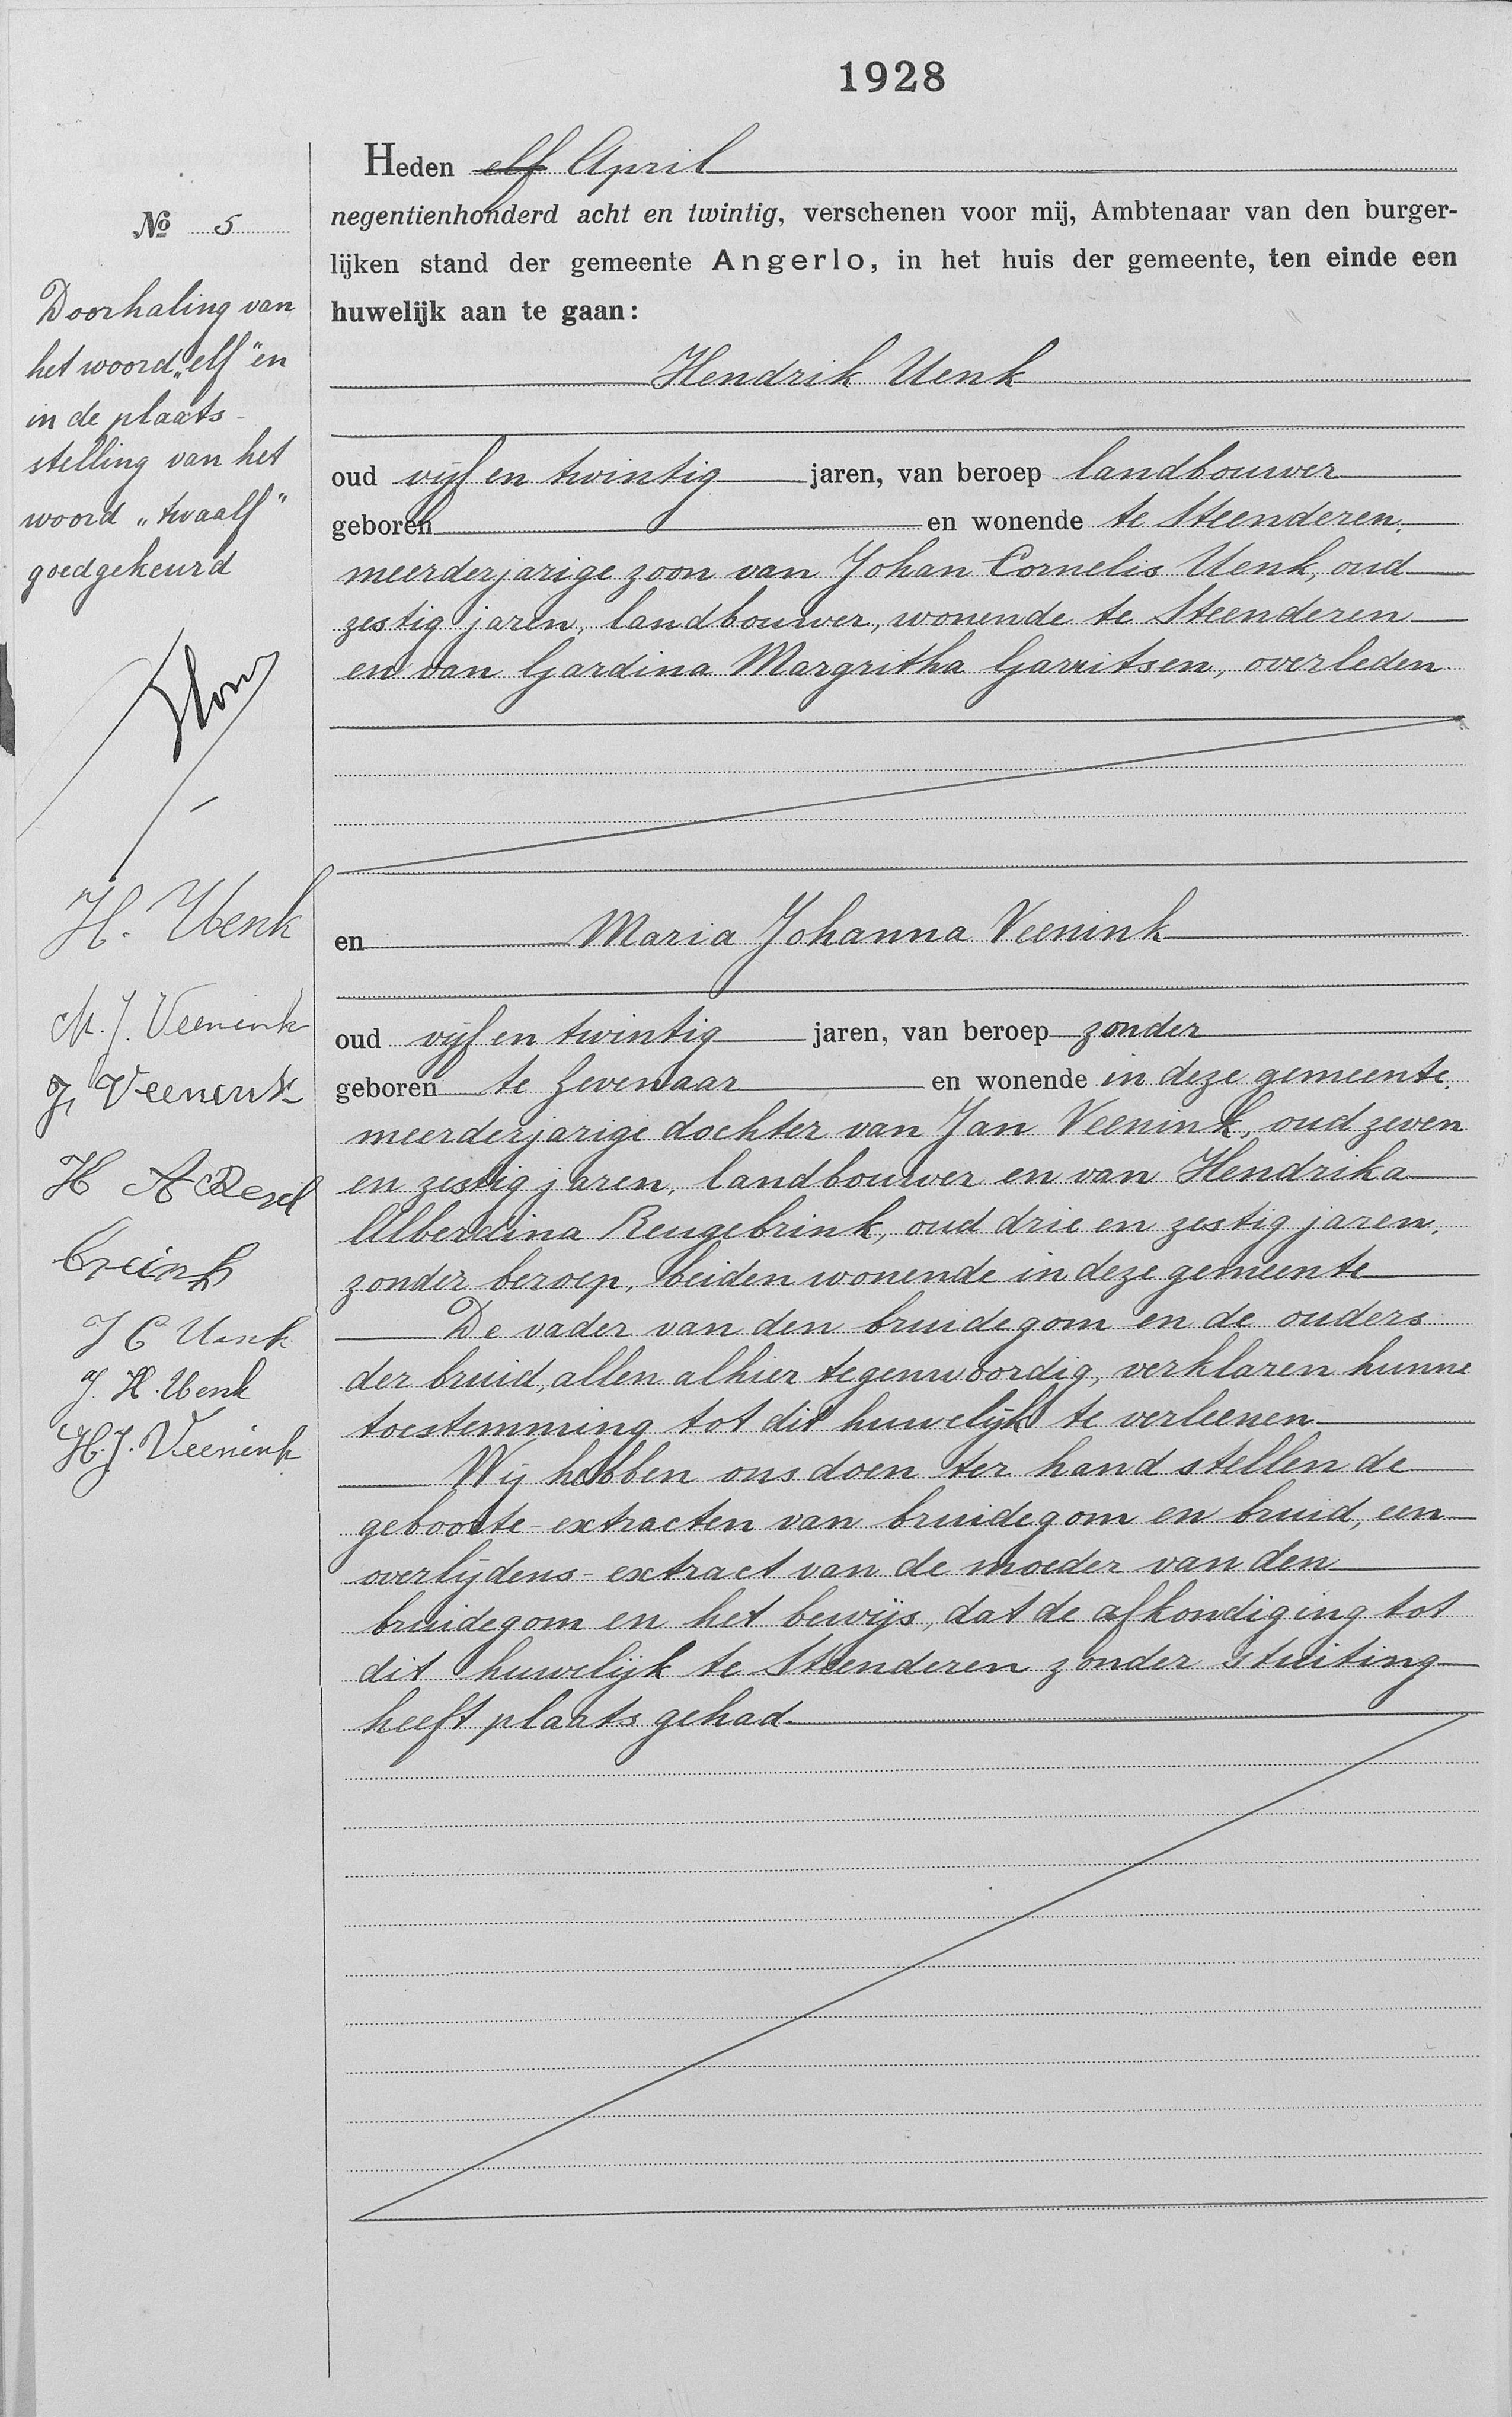 1928
№ 5
Doorhaling van
het woord „elf" en
in de plaats-
stelling van het
woord „twaalf"
goedgekeurd
H. Uenk
M. J. Veenink
J. Veenink
H A
J C Uenk
J. H. Uenk
H. J. Veenink
Heden elf April
negentienhonderd acht en twintig, verschenen voor mij, Ambtenaar van den burger-
lijken stand der gemeente Angerlo, in het huis der gemeente, ten einde een
huwelijk aan te gaan:
Hendrik Uenk
oud vijf en twintig jaren, van beroep landbouwer
geboren en wonende te Steenderen,
meerderjarige zoon van Johan Cornelis Uenk, oud
zestig jaren, landbouwer, wonende te Steenderen
en van Gardina Margritha Garritsen, overleden
en Maria Johanna Veenink
oud vijf en twintig jaren, van beroep zonder
geboren te Zevenaar en wonende in deze gemeente,
meerderjarige dochter van Jan Veenink, oud zeven
en zestig jaren, landbouwer en van Hendrika
Alberdina Reugebrink, oud drie en zestig jaren,
zonder beroep, beiden wonende in deze gemeente
De vader van den bruidegom en de ouders
der bruid, allen alhier tegenwoordig, verklaren hunne
toestemming tot dit huwelijk te verleenen
Wij hebben ons doen ter hand stellen de
geboorte-extracten van bruidegom en bruid, een
overlijdens-extract van de moeder van den
bruidegom en het bewijs, dat de afkondiging tot
dit huwelijk te Steenderen zonder stuiting
heeft plaats gehad.